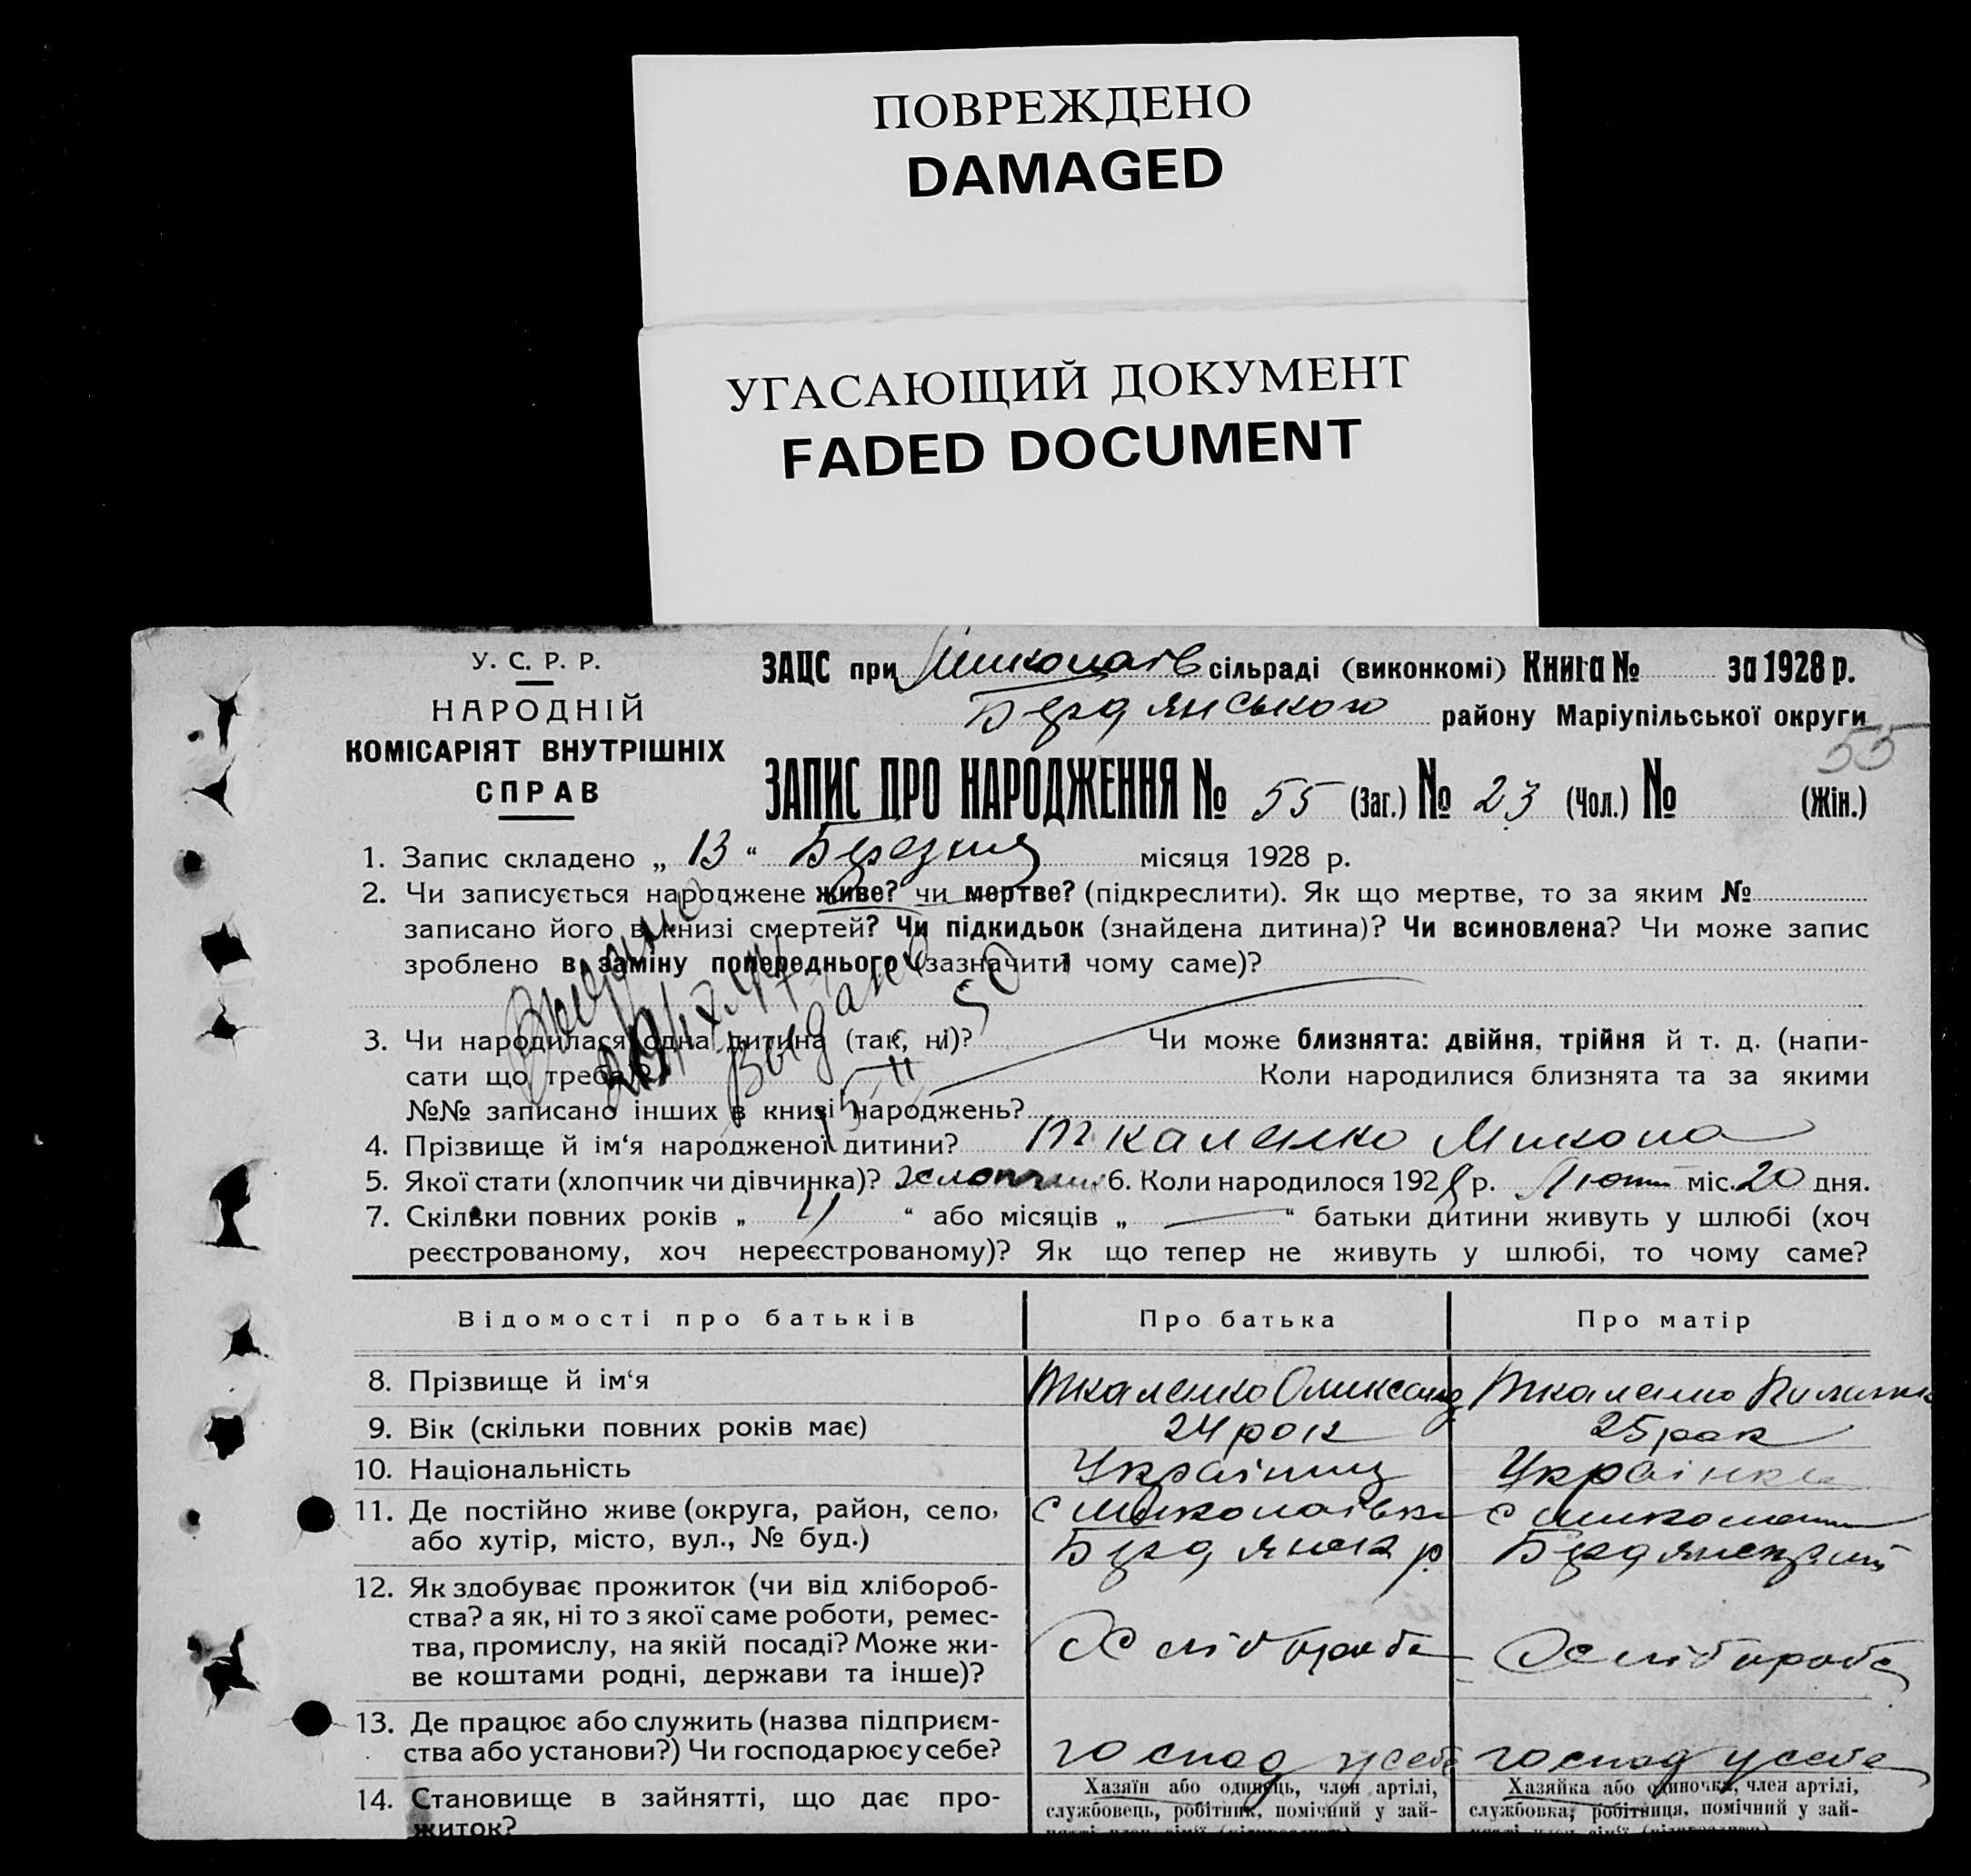 ПОВРЕЖДЕНО
DAMAGED
УГАСАЮЩИЙ ДОКУМЕНТ
FADED DOCUMENT
У. С. Р. Р.
НАРОДНІЙ
КОМІСАРІЯТ ВНУТРІШНІХ
СПРАВ
ЗАЦС при Миколаїв сільраді (виконкомі) Книга № за 1928 р.
Бердянського району Маріупільської округи
55
ЗАПИС ПРО НАРОДЖЕННЯ № 55 (Заг.) № 23 (Чол.) № (Жін.)
1. Запис складено „ 13 “ Березня місяця 1928 р.
2. Чи записується народжене живе? чи мертве? (підкреслити). Як що мертве, то за яким №
записано його в книзі смертей? Чи підкидьок (знайдена дитина)? Чи всиновлена? Чи може запис
зроблено в заміну попереднього (зазначити чому саме)?
3. Чи народилася одна дитина (так, ні)? Чи може близнята: двійня, трійня й т. д. (напи-
сати що треба)? Коли народилися близнята та за якими
№№ записано інших в книзі народжень?
4. Прізвище й ім‘я народженої дитини? Ткаленко Микола
5. Якої стати (хлопчик чи дівчинка)? Хлопчик 6. Коли народилося 1928 р. Лютий міс. 20 дня.
7. Скільки повних років „ “ або місяців „ “ батьки дитини живуть у шлюбі (хоч
реєстрованому, хоч нереєстрованому)? Як що тепер не живуть у шлюбі, то чому саме?
Відомості про батьків Про батька Про матір
8. Прізвище й ім‘я Ткаленко Ткаленко
9. Вік (скільки повних років має) 24 рок 25 рок
10. Національність Українець Українка
11. Де постійно живе (округа, район, село, с Миколаївка с
або хутір, місто, вул., № буд.) Бердянск р.
12. Як здобуває прожиток (чи від хлібороб-
ства? а як, ні то з якої саме роботи, ремес-
тва, промислу, на якій посаді? Може жи- Хлібороба Хлібороба
ве коштами родні, держави та інше)?
13. Де працює або служить (назва підприєм-
ства або установи?) Чи господарює у себе? господ у себе господ у себе
14. Становище в зайнятті, що дає про-
житок?
Хазяїн або одинець, член артілі,
службовець, робітник, помічний у зай-
Хазяйка або одиночка, член артілі,
службовка, робітниця, помічний у зай-